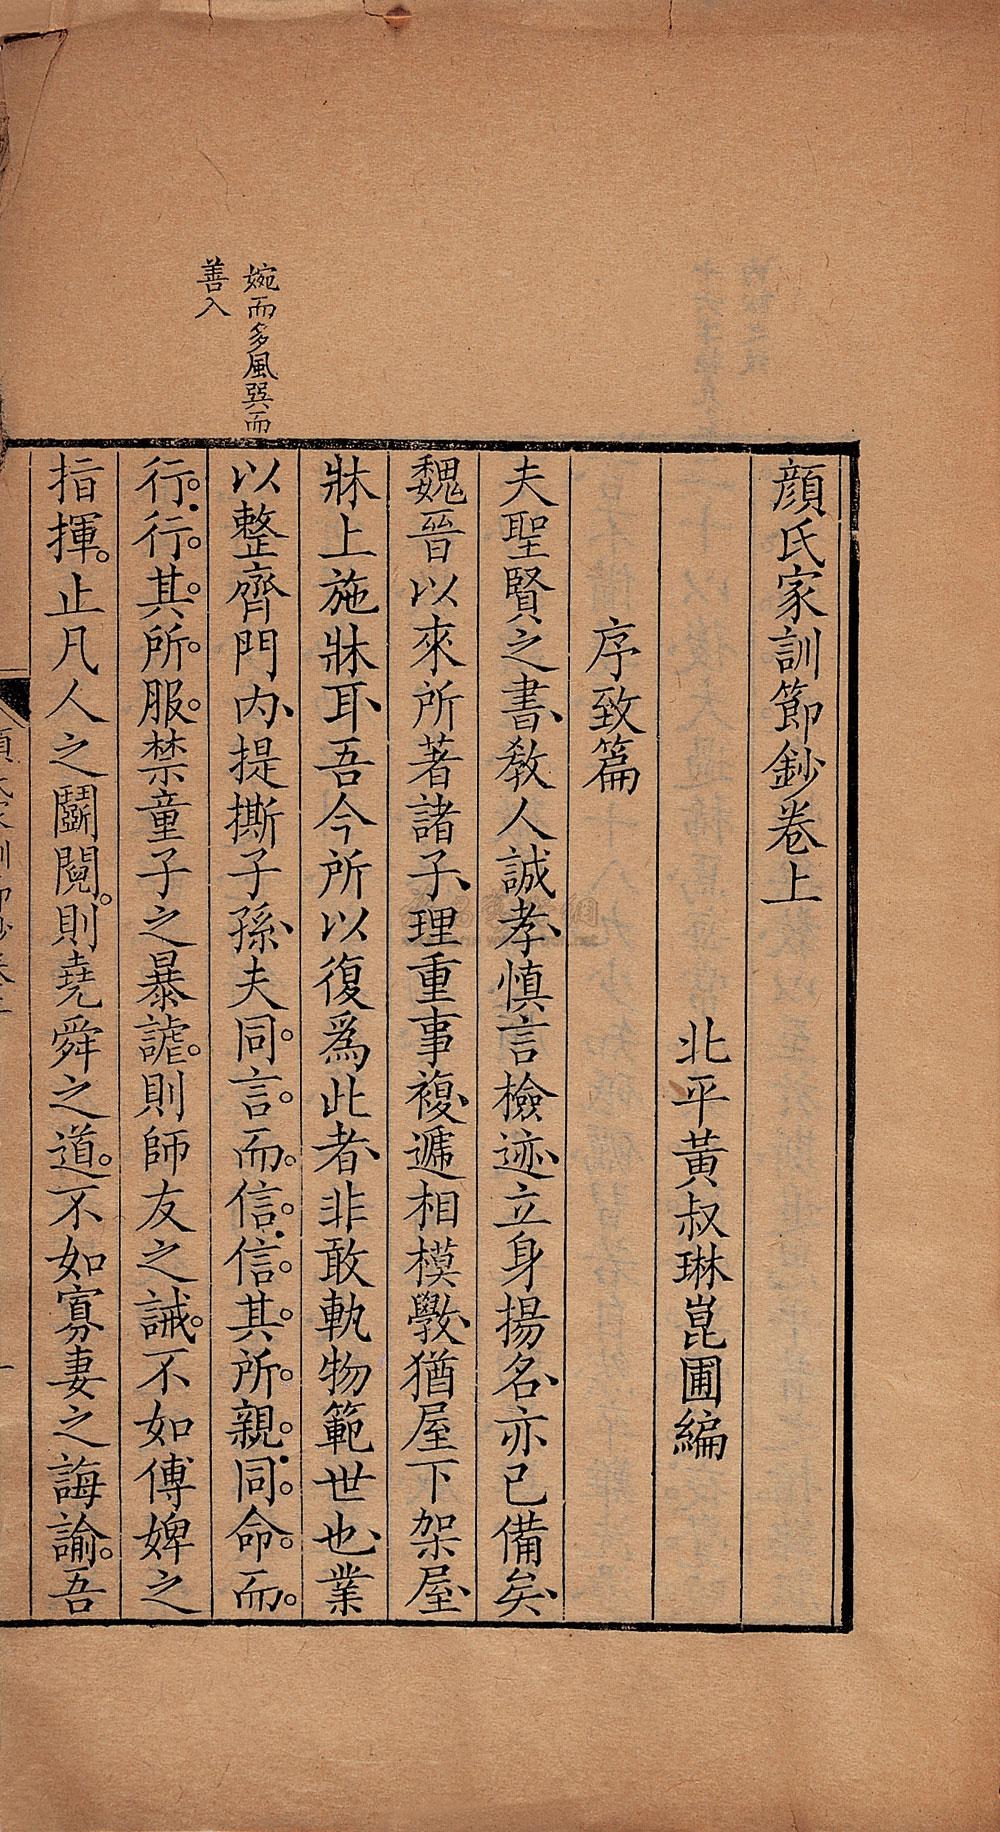 顔氏家訓節鈔卷上
北平黃叔琳崑圃編
序致篇
夫聖賢之書教人誠孝慎言檢迹立身揚名亦已備矣
魏晉以來所著諸子理重事複遞相模斆猶屋下架屋
牀上施牀耳吾今所以復爲此者非敢軌物範世也業
以整齊門内提撕子孫夫同言而信信其所親同命而
行行其所服禁童子之暴謔則師友之誡不如傅婢之
指揮止凡人之鬭䦧則堯舜之道不如寡妻之誨諭吾
婉而多風巽而
善入